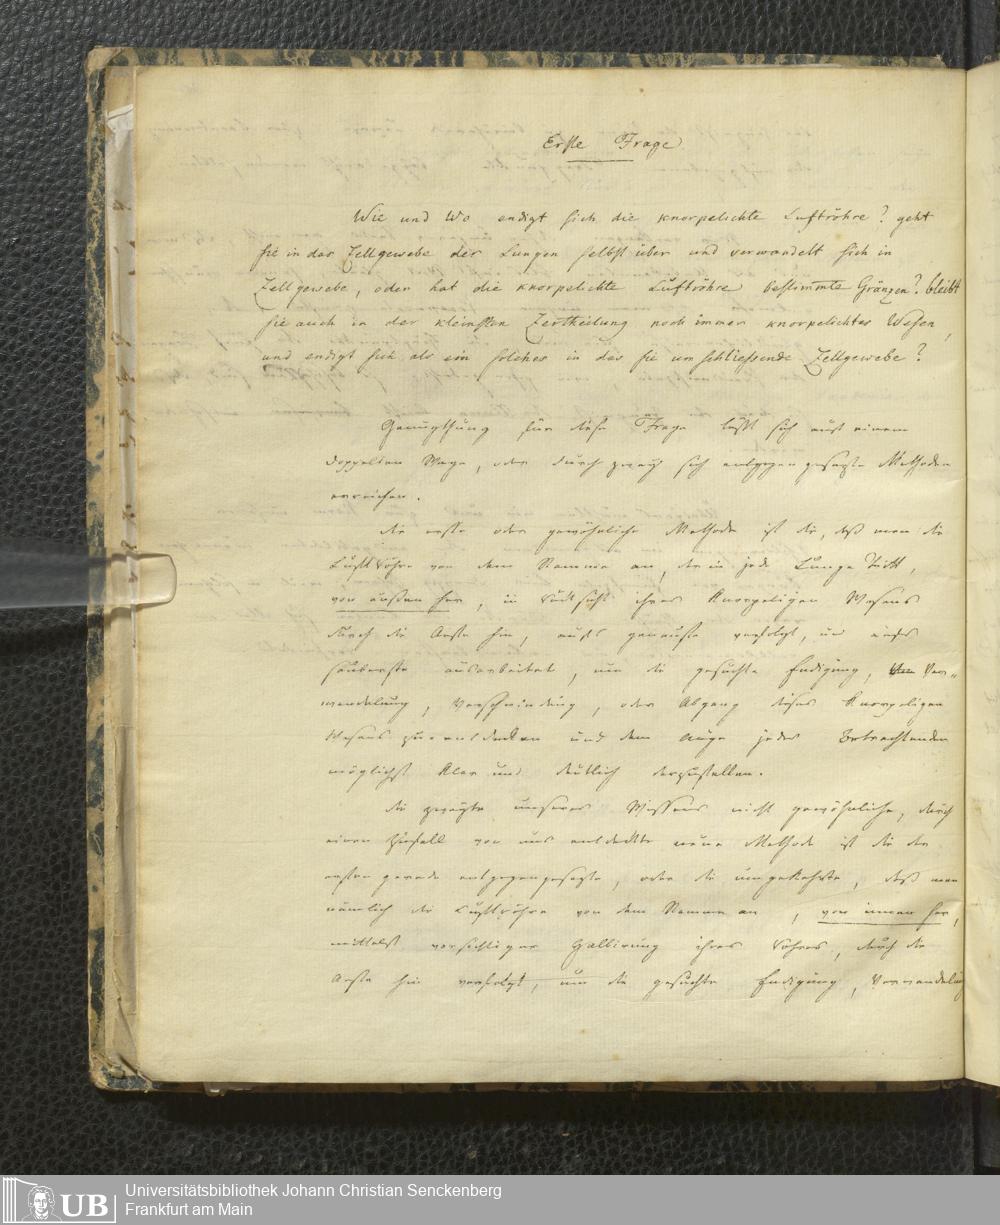 Erste Frage
Wie und Wo endigt sich die knorpelichte Luftröhre? geht
sie in das Zellgewebe der Lungen selbst über und verwandelt sich in
Zellgewebe, oder hat die knorpelichte Luftröhre bestimmte Gränzen? bleibt
sie auch in der kleinsten Zertheilung noch immer knorpelichtes Wesen,
und endigt sich als ein solches in das sie umschliessende Zellgewebe?
Genugthüung für diese Frage läßt sich auf einem
doppelten Wege, oder durch zwey sich entgegen gesezte Methoden
erreichen.
die erste oder gewöhnliche Methode ist die, daß man die
Luftröhre von dem Stamme an, der in jede Lunge tritt,
von außen her, in Rücksicht ihres Knorpeligen Wesens
durch die Aeste hin, aufs genauste verfolgt, und aufs
sauberste ausarbeitet, um die gesuchte Endigung, Ver-
wandelung, Verschwindung, oder Abgang dieses Knorpeligen
Wesens zu entdecken und dem Auge jedes Betrachtenden
möglichst klar und deutlich darzustellen.
die zweyte unseres Wissens nicht gewöhnliche, durch
einen Zufall von uns entdeckte neue Methode ist die der
ersten gerade entgegengesezte, oder die umgekehrte, daß man
nämlich die Luftröhre von dem Stamme an, von innen her,
mittelst vorsichtiger ihrer Röhren, durch die
Aeste hin verfolgt, um die gesuchte Endigung, Verwandelung
UB
Universitätsbibliothek Johann Christian Senckenberg
Frankfurt am Main